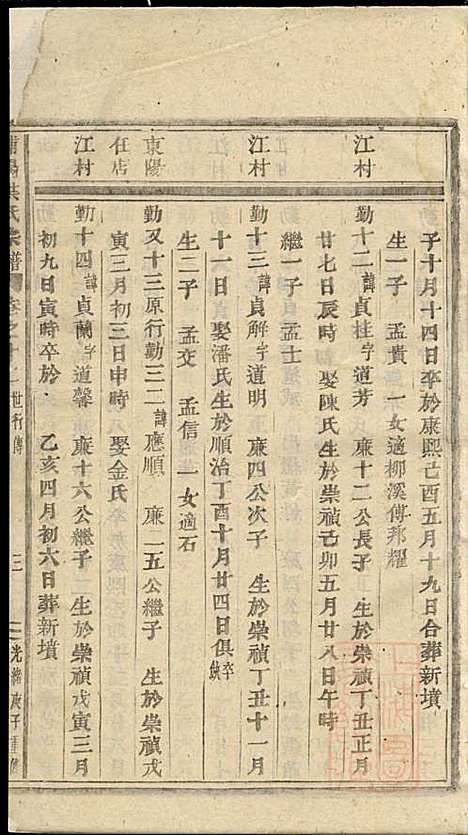 子十月十四日卒於康熙己酉五月十九日合葬新墳
生一子 孟貴 一女適柳溪傅邦耀
江村
勤十二諱貞桂字道芳 廉十二公長子 生於崇禎丁丑正月
廿七日辰時 娶陳氏生於崇禎己卯五月廿八日午時
繼一子孟士
江村
勤十三諱貞解字道明 廉四公次子 生於崇禎丁丑十一月
十一日娶潘氏生於順治丁酉十月廿四日俱卒缺
生二子 孟交 孟信 一女適石
東陽
任店
勤又十三原行勤三二諱應順 廉二五公繼子 生於崇禎戊
寅三月初三日申時 娶金氏
江村
勤十四諱貞蘭字道馨 廉十六公繼子 生於崇禎戊寅三月
初九日寅時卒於 乙亥四月初六日葬新墳
氏宗譜 卷之十二 世行傳 三 光緒庚子重修